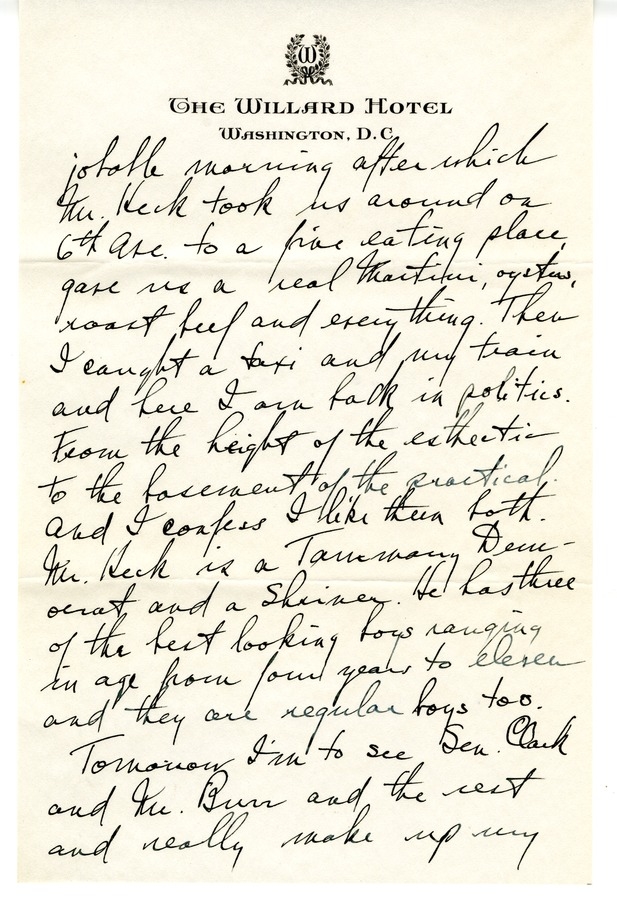 W
THE WILLARD HOTEL
WASHINGTON, D.C.
joyable morning after which
Mr. Heck took us around on
6th Ave. to a fine eating place,
gave us a real Martini, oysters,
roast beef and everything. Then
I caught a taxi and my train
and here I am back in politics.
From the height of the esthetic
to the basement of the practical.
And I confess I like them both.
Mr. Heck is a Tammany Dem-
ocrat and a Shriner. He has three
of the best looking boys ranging
in age from four years to eleven
and they are regular boys too.
Tomorrow I'm to see Sen. Clark
and Mr. Burr and the rest
and really make up my